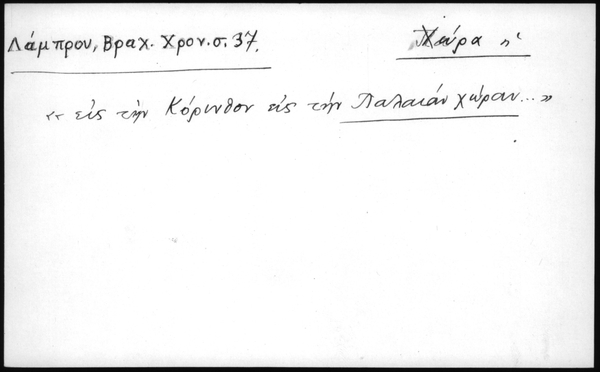 Λάμπρου, Βραχ. Χρον. σ. 37.
Χώρα η
« εἰς τὴν Κόρινθον εἰς τὴν Παλαιάν χώραν... »